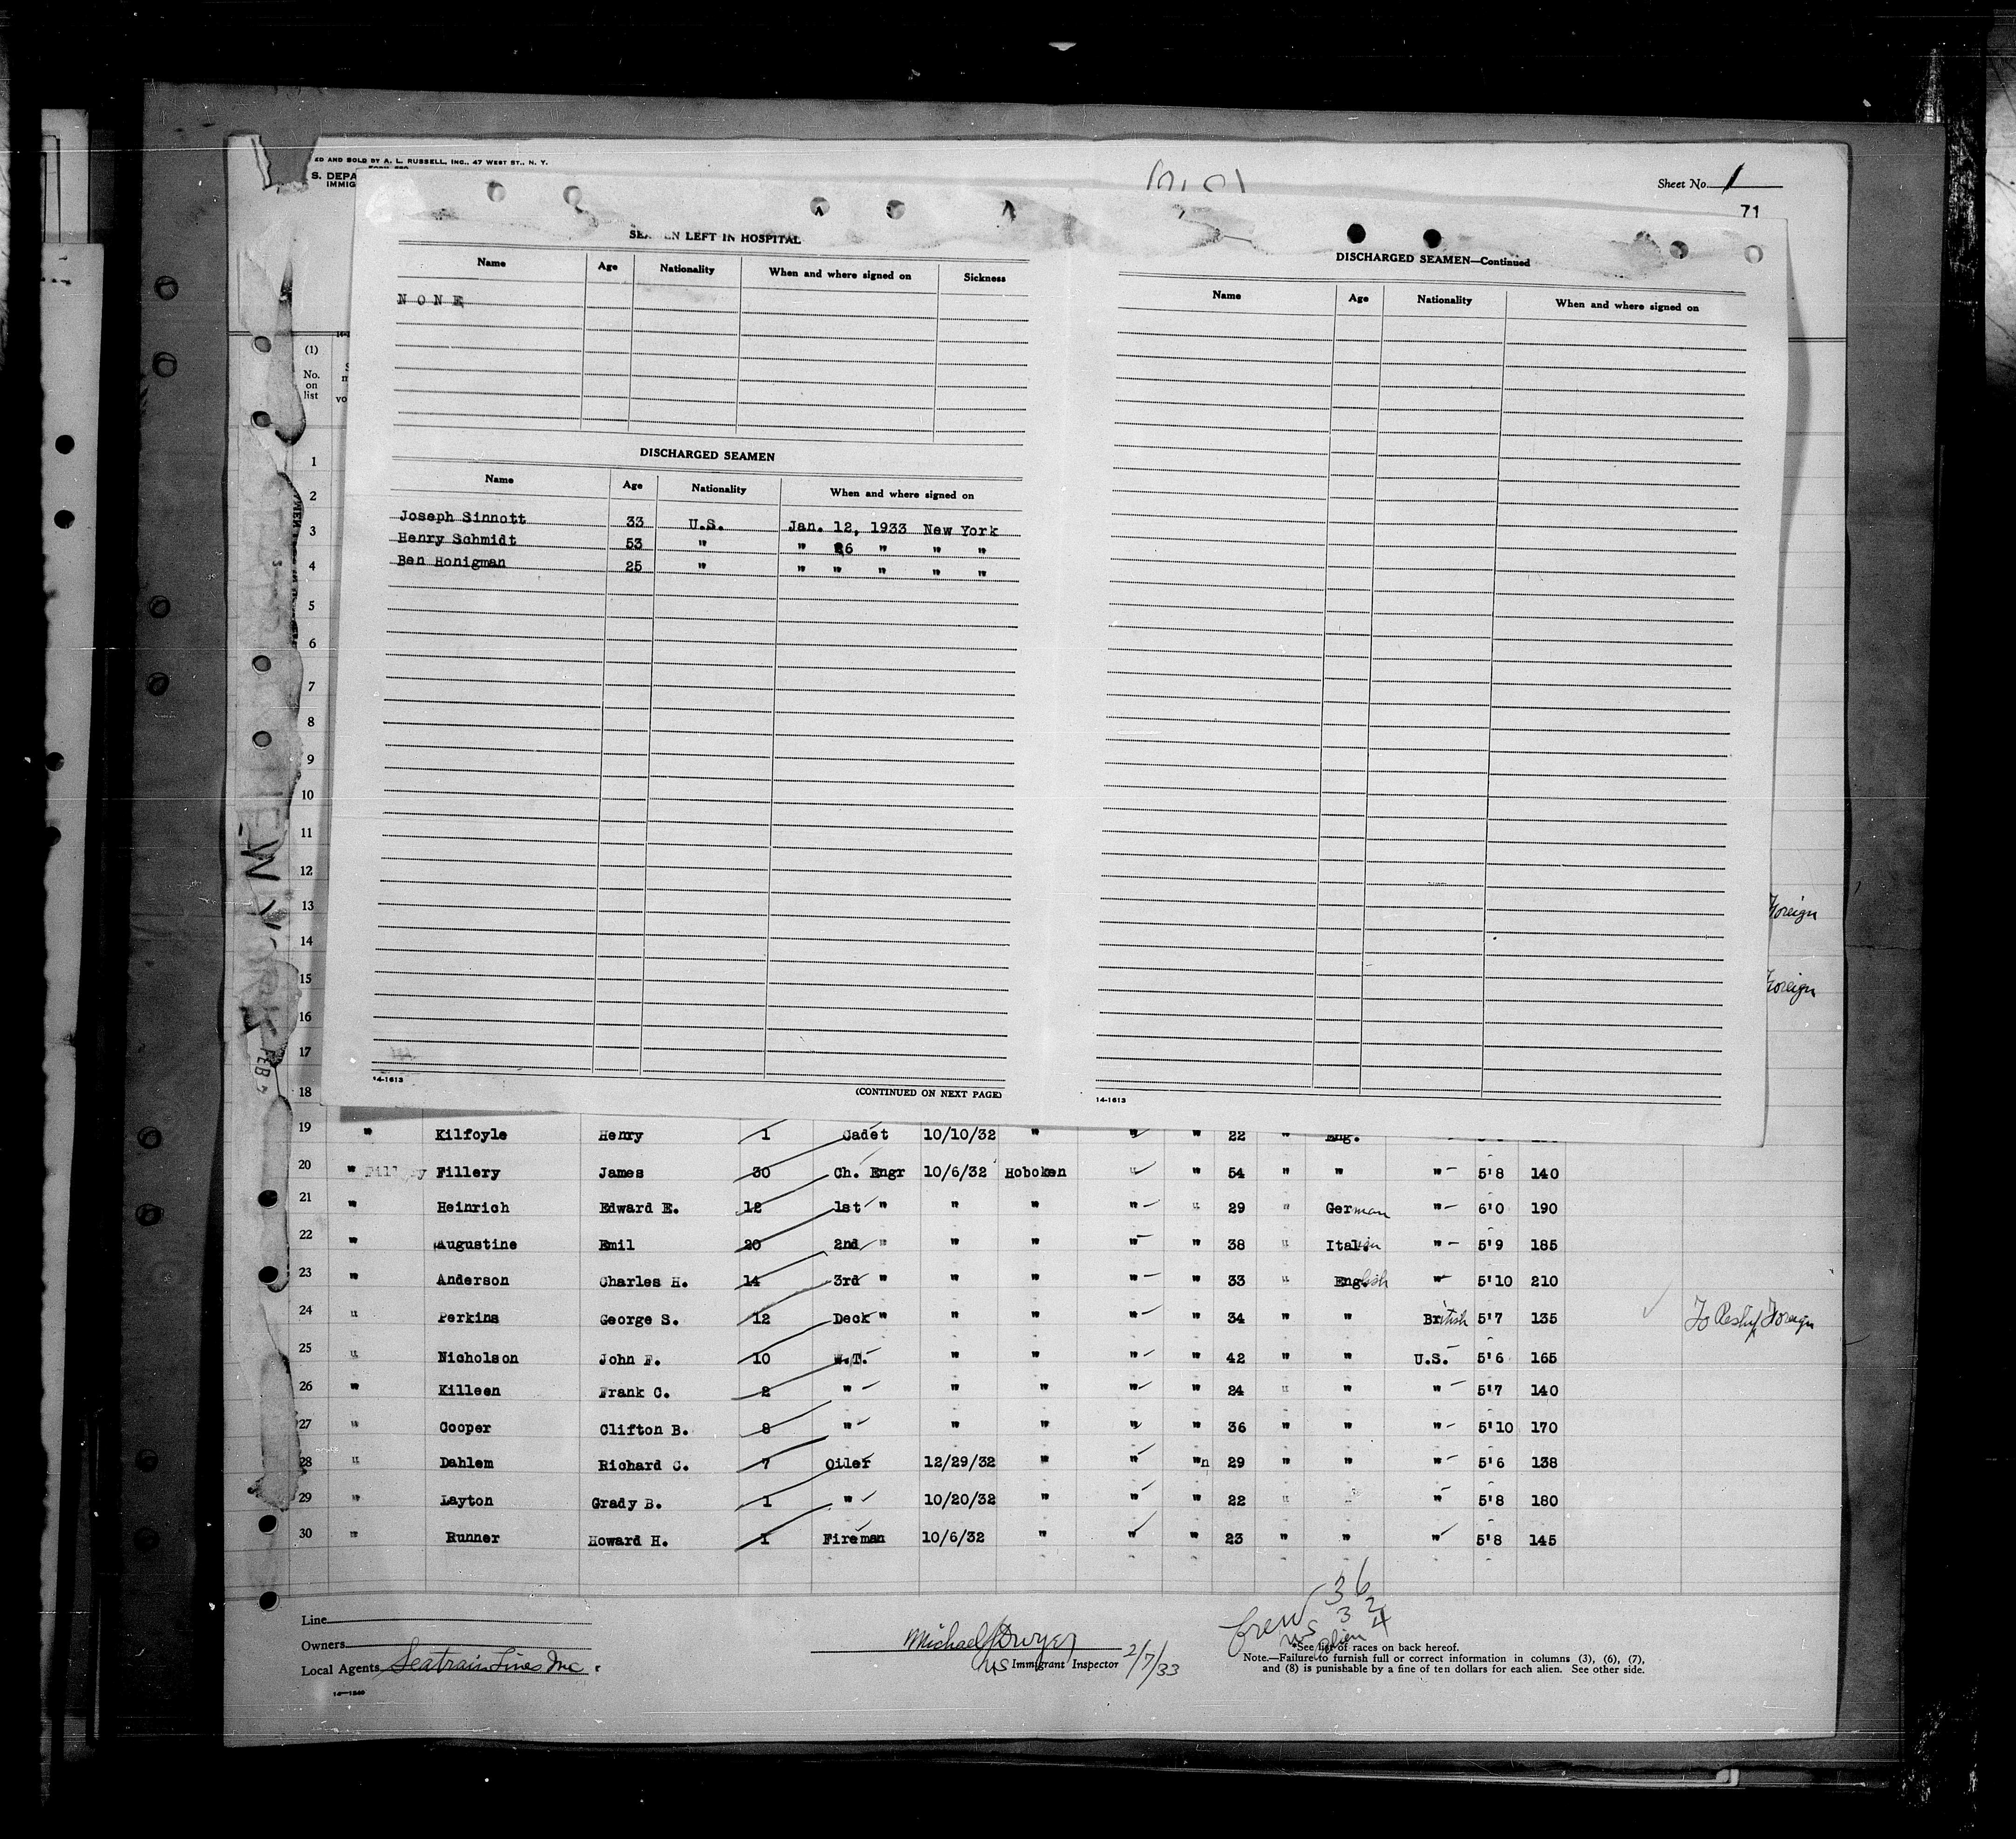 ED AND SOLD BY A. L. RUSSELL, INC., 47 WEST ST., N. Y.
S. DEPA
IMMIG
Sheet No. 1
71
LEFT IN HOSPITAL
Name Age Nationality When and where signed on Sickness
NONE
DISCHARGED SEAMEN
Name Age Nationality When and where signed on
Joseph Sinnott 33 U.S. Jan. 12, 1933 New York
Henry Schmidt 53 " " 26 " " "
Ben Honigman 25 " " " " " "
14-1613
(CONTINUED ON NEXT PAGE)
DISCHARGED SEAMEN—Continued
Name Age Nationality When and where signed on
14-1613
(1)
No.
on
list
1
2
3
4
5
6
7
8
9
10
11
12
13
Foreign
14
15
Foreign
16
17
18
FEB
19 " Kilfoyle Henry 1 Cadet 10/10/32 " " " 22 " Eng.
20 " Fillery James 30 Ch. Engr 10/6/32 Hoboken " " 54 " " " 5'8 140
21 " Heinrich Edward E. 12 1st " " " " " 29 " German " 6'0 190
22 " Augustine Emil 20 2nd " " " " " 38 " Italian " 5'9 185
23 " Anderson Charles H. 14 3rd " " " " " 33 " English " 5'10 210
24 " Perkins George S. 12 Deck " " " " " 34 " " British 5'7 135 To Reship Foreign
25 " Nicholson John F. 10 W.T. " " " " 42 " " U.S. 5'6 165
26 " Killeen Frank C. 2 " " " " " 24 " " " 5'7 140
27 " Cooper Clifton B. 8 " " " " " 36 " " " 5'10 170
28 " Dahlem Richard C. 7 Oiler 12/29/32 " " " 29 " " " 5'6 138
29 " Layton Grady B. 1 " 10/20/32 " " " 22 " " " 5'8 180
30 " Runner Howard H. 1 Fireman 10/6/32 " " " 23 " " " 5'8 145
Line
Owners
Local Agents Seatrain Lines Inc.
14—1240
Michael J Dwyer
US Immigrant Inspector 2/7/33
Crew 36
US 32
Alien 4
*See list of races on back hereof.
Note.—Failure to furnish full or correct information in columns (3), (6), (7),
and (8) is punishable by a fine of ten dollars for each alien. See other side.